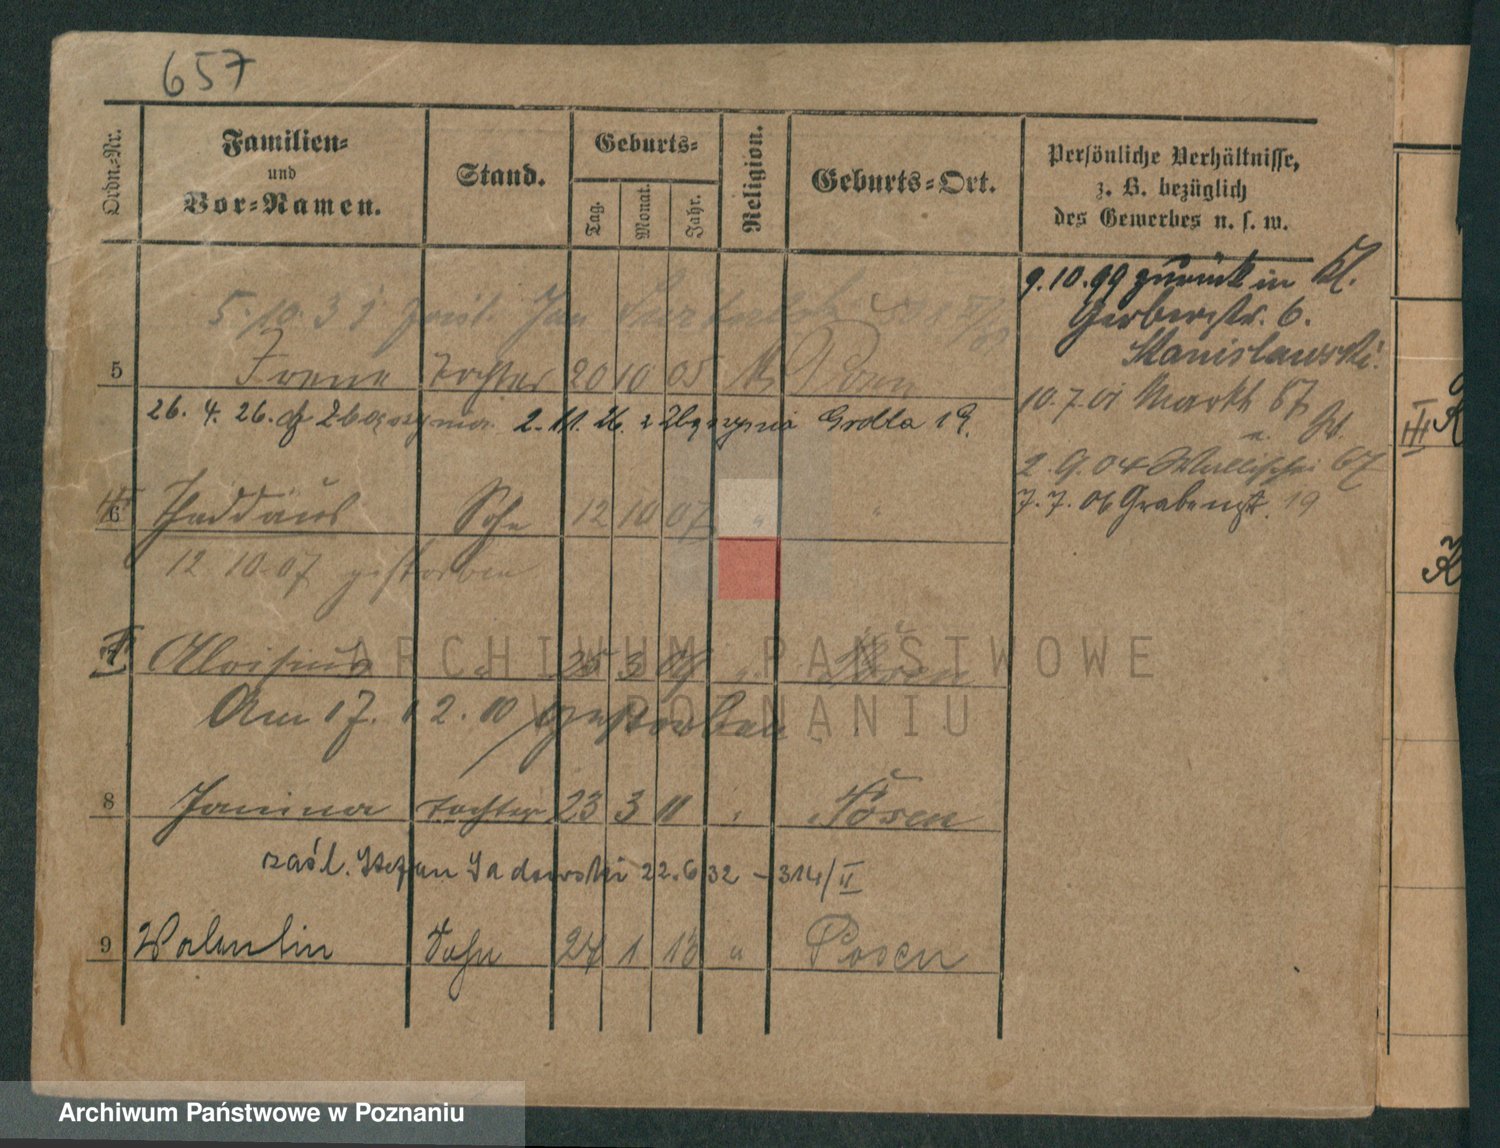 657
Ordn.-Nr.
Familien-
und
Vor-Namen.
Stand.
Geburts-
Tag.
Monat.
Jahr.
Religion.
Geburts-Ort.
Persönliche Verhältnisse,
z. B. bezüglich
des Gewerbes u. s. w.
9.10.99 zurück in Kl.
Gerberstr. 6.
Stanislawski.
10.7.01 Markt 67
2.9.04 Wallischei 67
7.7.06 Grabenstr. 19
5.10.31 Jan
5 Irene Tochter 20 10 05 Posen
26. 4. 26. Zbąszynia 2.11.26. z Zbąszynia Grobla 19.
6 Thaddäus Sohn 12 10 07 " "
12 10.07 gestorben
7 Aloisius " 25 3 09 " Posen
Am 17. 12. 10 gestorben
8 Janina Tochter 23 3 11 " Posen
zaśl. Stefan Sadowski 22.6.32 – 314/II
9 Valentin Sohn 27 1 13 " Posen
III
ARCHIWUM PAŃSTWOWE
W POZNANIU
Archiwum Państwowe w Poznaniu